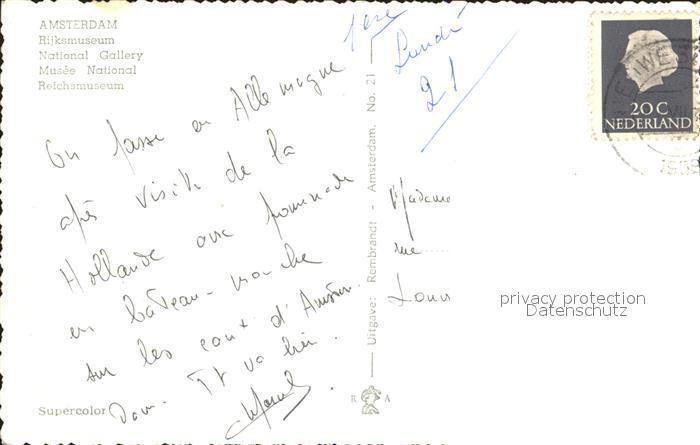 AMSTERDAM
Rijksmuseum
National Gallery
Musée National
Reichsmuseum
On passe en Allemagne
après visite de la
Hollande avec promenade
en bateau-mouche
sur les eaux d'Amster
Dam. Tt va bien.
Supercolor
Uitgave: Rembrandt - Amsterdam. No. 21
R A
Lundi
21
20 C
NEDERLAND
Madame
rue
Louis
privacy protection
Datenschutz